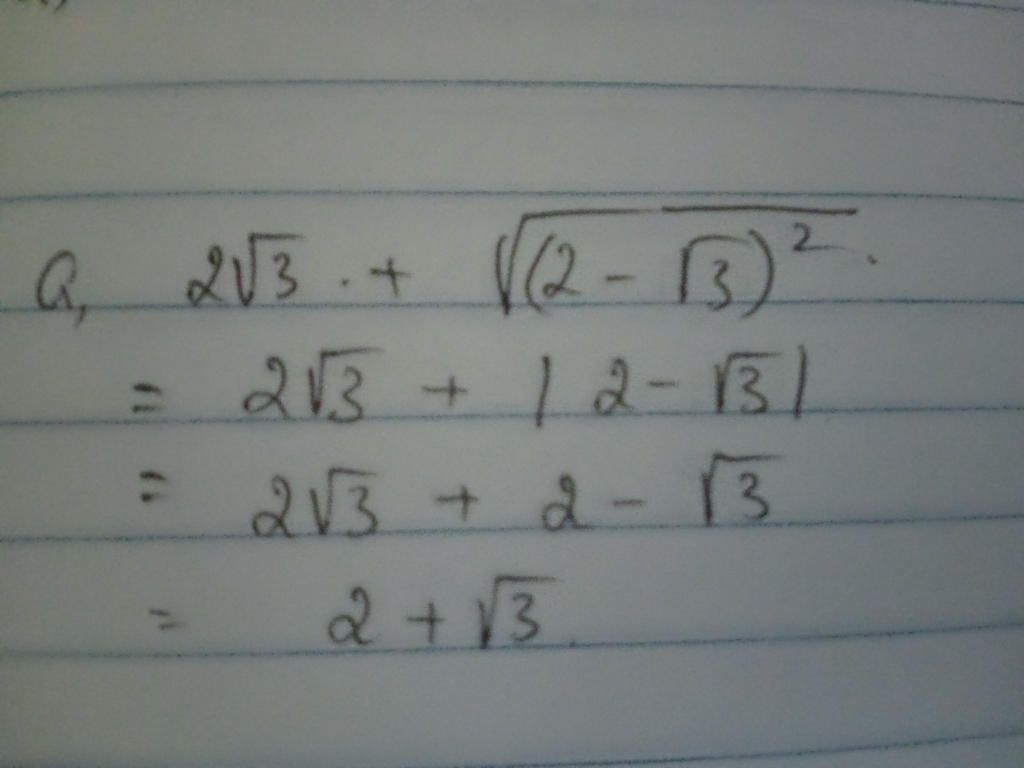 a, 2√3 . + √(2 - √3)² .
= 2√3 + |2 - √3|
= 2√3 + 2 - √3
= 2 + √3